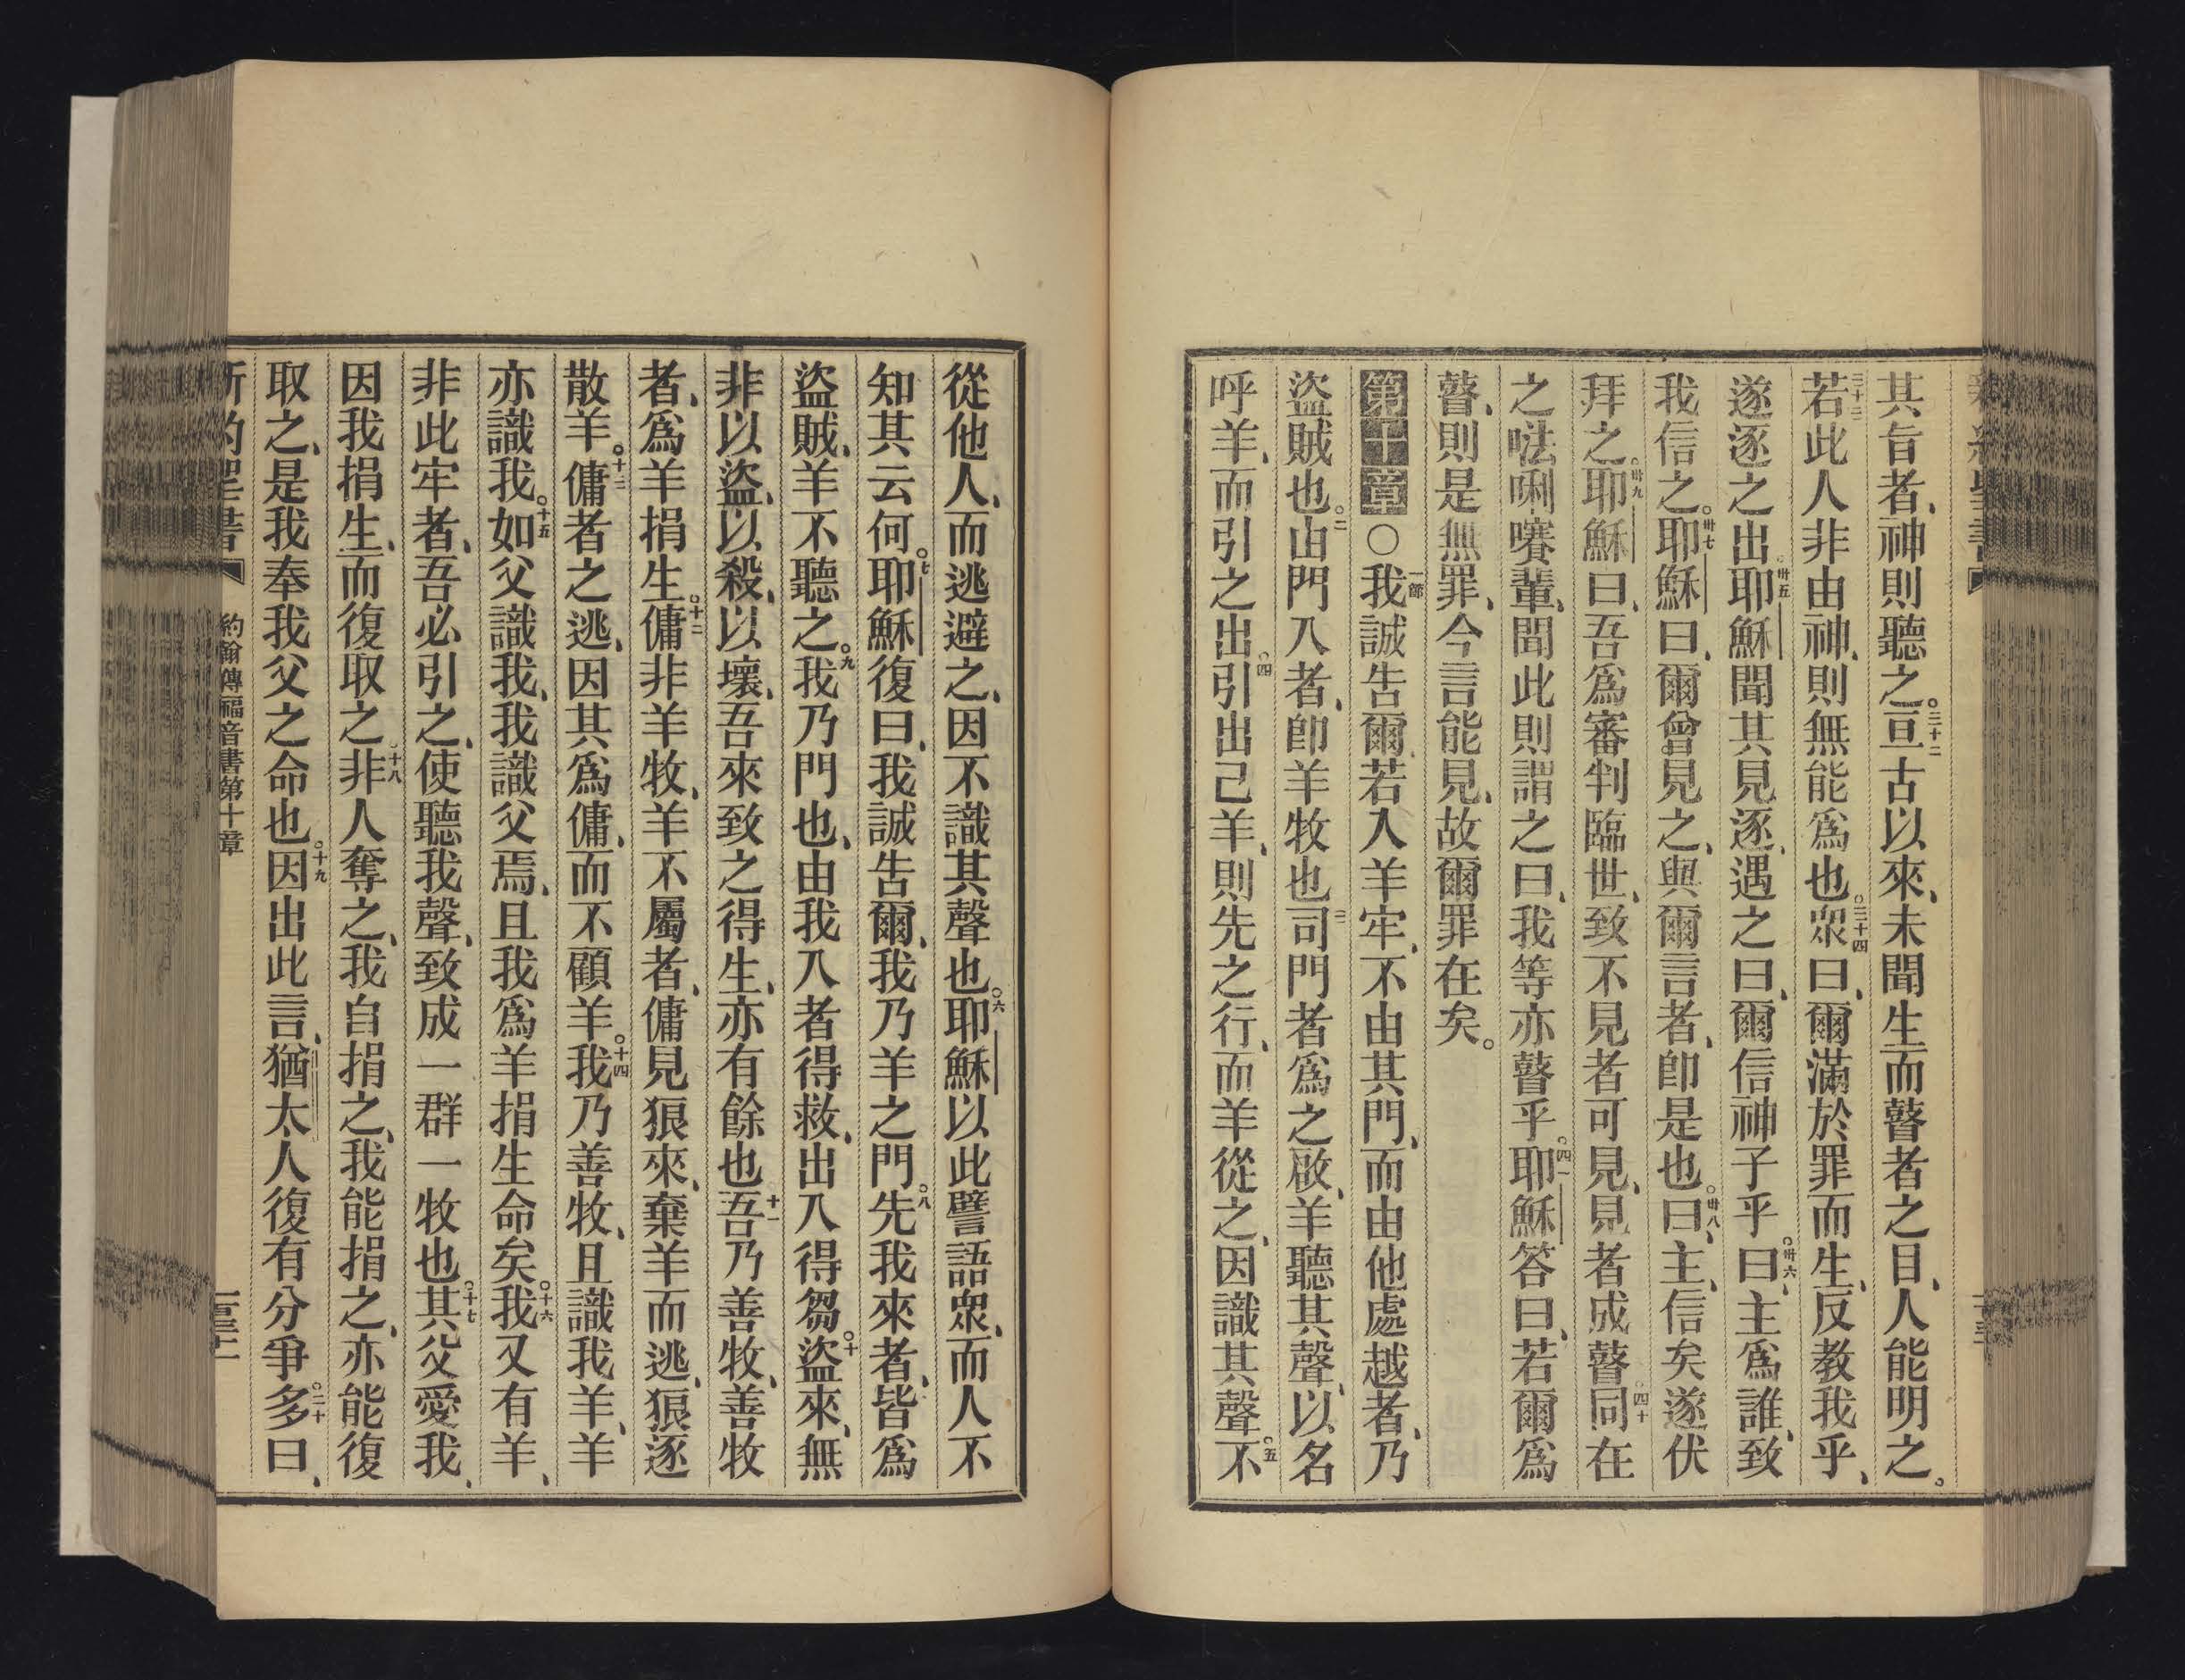 其旨者、神則聽之。三十二亘古以來、未聞生而瞽者之目、人能明之。
三十三若此人非由神、則無能爲也。三十四衆曰、爾滿於罪而生、反教我乎、
遂逐之出。卅五耶穌聞其見逐、遇之曰、爾信神子乎。卅六曰、主爲誰、致
我信之。卅七耶穌曰、爾曾見之、與爾言者、卽是也。卅八曰、主、信矣遂伏
拜之。卅九耶穌曰、吾爲審判臨世、致不見者可見、見者成瞽。四十同在
之𠵽唎㘔輩、聞此則謂之曰、我等亦瞽乎。四一耶穌答曰、若爾爲
瞽、則是無罪、今言能見、故爾罪在矣。
第十章○一節我誠吿爾、若入羊牢、不由其門、而由他處越者、乃
盜賊也。二由門入者、卽羊牧也三司門者爲之啟、羊聽其聲、以名
呼羊、而引之出。四引出己羊、則先之行、而羊從之、因識其聲。五不
從他人、而逃避之、因不識其聲也。六耶穌以此譬語衆、而人不
知其云何。七耶穌復曰、我誠吿爾、我乃羊之門。八先我來者、皆爲
盜賊、羊不聽之。九我乃門也、由我入者得救、出入得芻。十盜來、無
非以盜、以殺、以壞、吾來致之得生、亦有餘也十一吾乃善牧、善牧
者、爲羊捐生。十二傭非羊牧、羊不屬者、傭見狼來、棄羊而逃、狼逐
散羊。十三傭者之逃、因其爲傭、而不顧羊。十四我乃善牧、且識我羊、羊
亦識我。十五如父識我、我識父焉、且我爲羊捐生命矣。十六我又有羊、
非此牢者、吾必引之、使聽我聲、致成一群一牧也。十七其父愛我、
因我捐生、而復取之。十八非人奪之、我自捐之、我能捐之、亦能復
取之、是我奉我父之命也。十九因出此言、猶太人復有分爭。二十多曰、
約翰傳福音書第十章